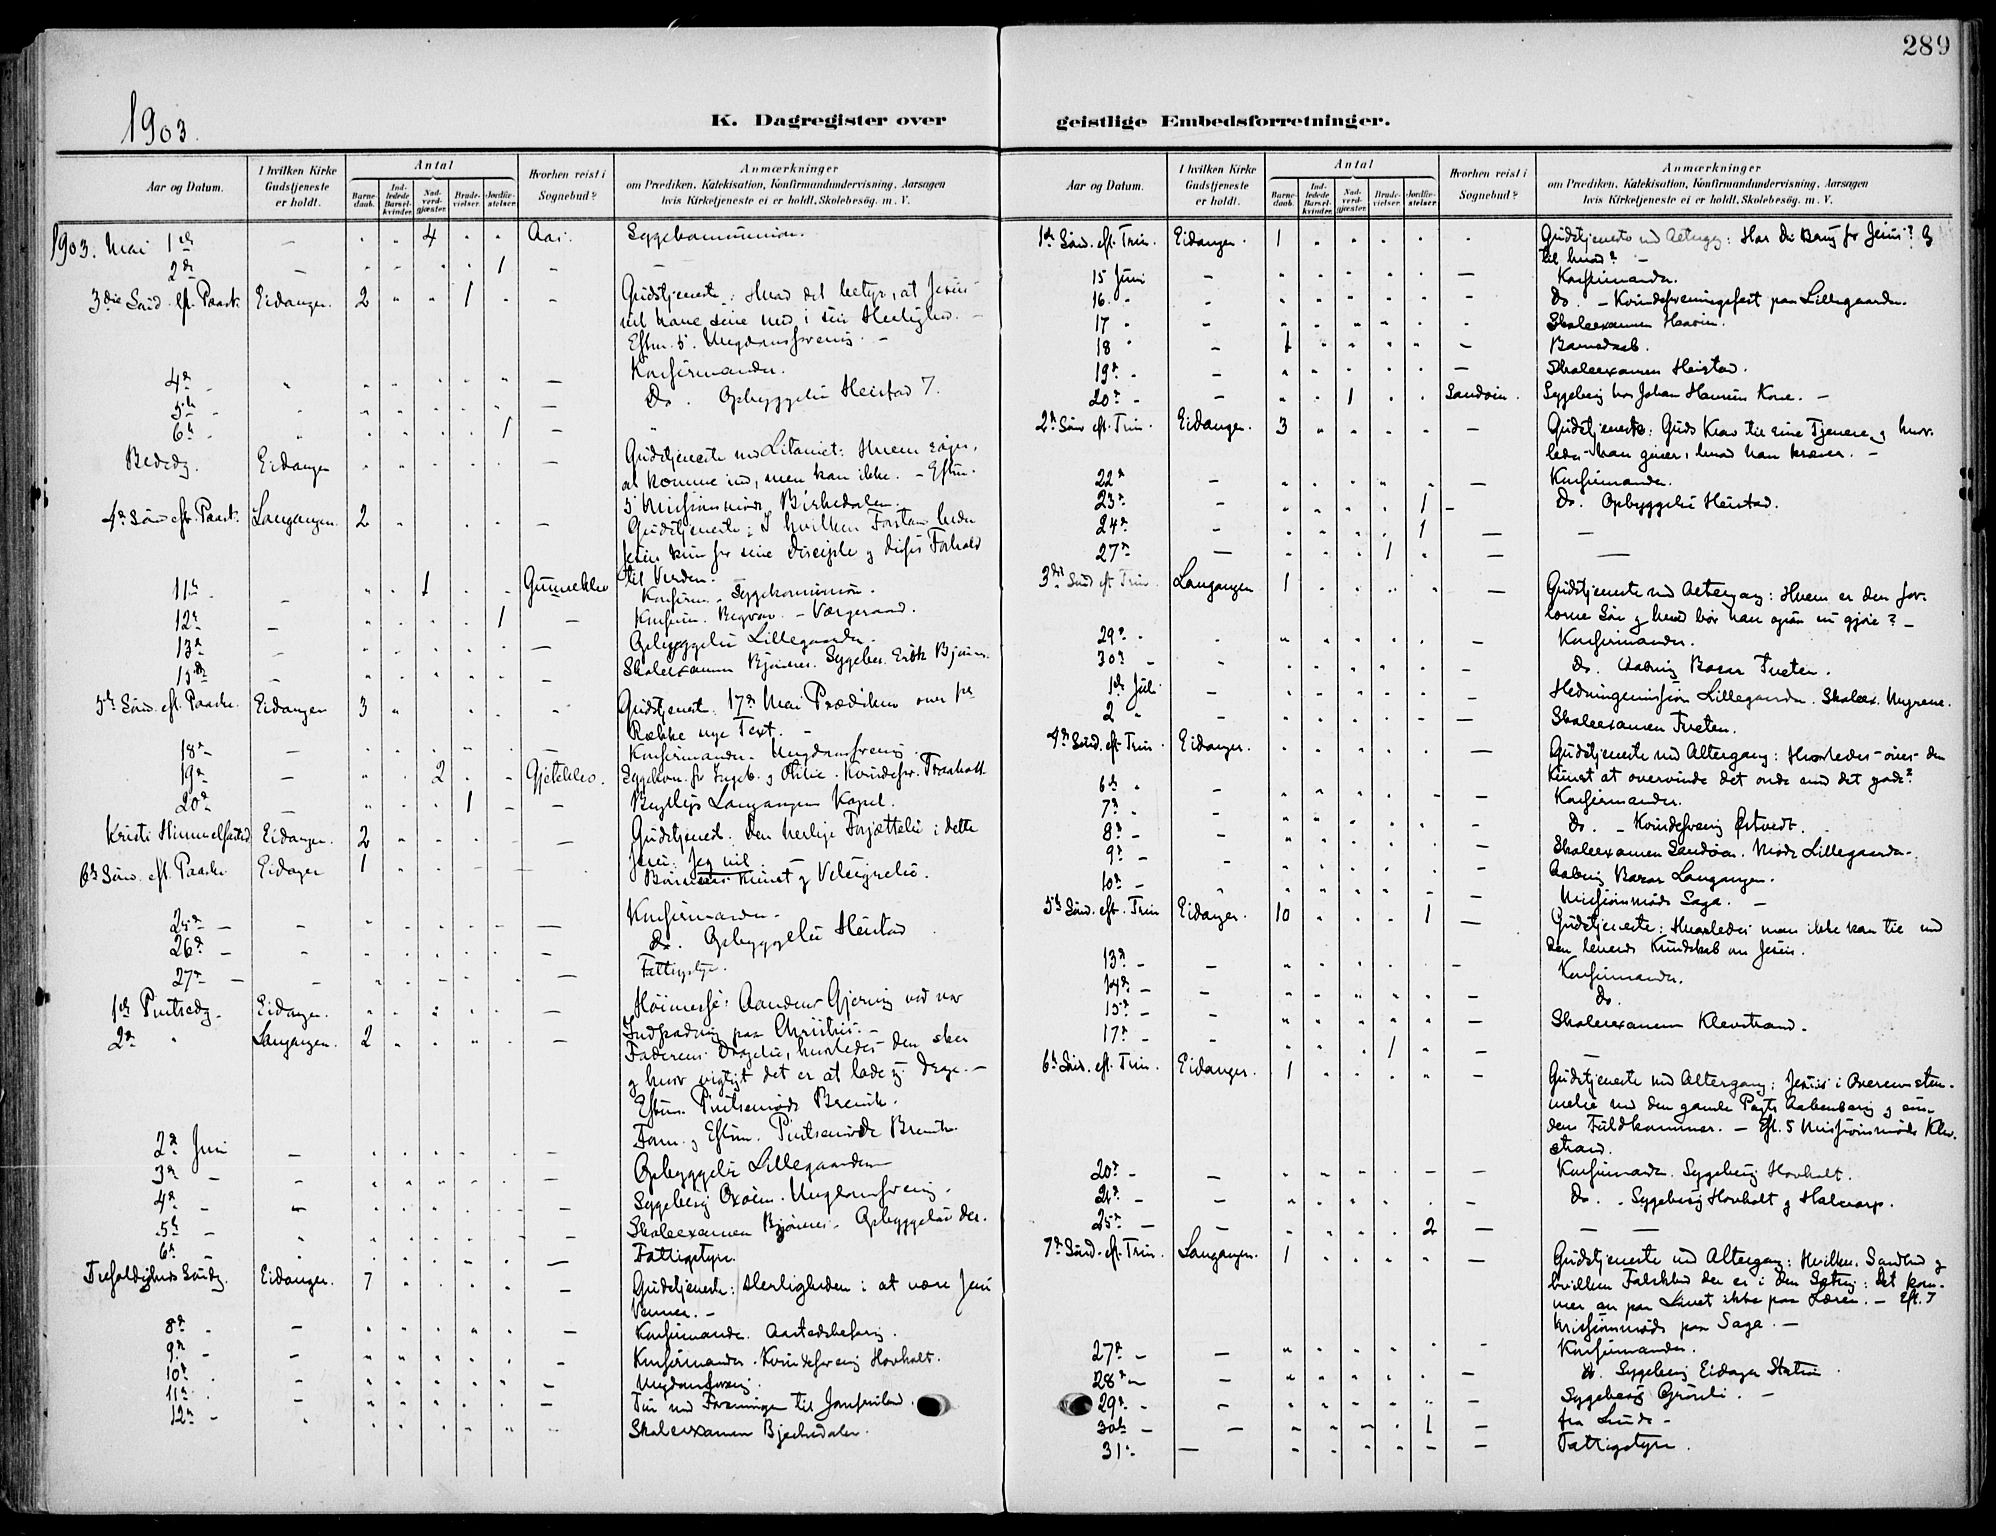 289
1903.
K. Dagregister over
geistlige Embedsforretninger.
Aar og Datum.
I hvilken Kirke Gudstjeneste er holdt.
Antal
Barnedaab.
Indledede Barselkvinder.
Nadverdgjæster.
Brudevielser.
Jordfæstelser.
Hvorhen reist i Sognebud?
Anmærkninger
om Prædiken, Katekisation, Konfirmandundervisning, Aarsagen
hvis Kirketjeneste ei er holdt, Skolebesøg. m. V.
1903. Mai 1ste - " " 4 " " Aas. Sygekommunion.
2den - " " " " 1 -
3die Sønd. eft. Paask. Eidanger. 2 " " 1 - - Gudstjeneste: Hvad det betyr, at Jesus
vil have sine med i sin Herlighed. -
Eftm. 5. Ungdomsforenig. -
4de - " " " " " " - Konfirmander.
5te - " " " " " - Do. Opbyggelse Heistad 7.
6te - " " " " " 1
Bededag. Eidanger " " " " " - Gudstjeneste med Litaniet: Hvem søger,
at komme ind, men kan ikke. - Eftm.
5 Missionsmøde Birkedalen.
4de Sønd eft. Paask. Langangen. 2 " " " " - Gudstjeneste: I hvilken Forstand beder
Jesus kun for sine Disciple og disses Forhold
til Verden.
11te - " " 1 " " Gunneklev Konfirm. Sygekommunion.
12te - " " " " 1 - Konfirm. Begrav. - Værgeraad.
13de - " " " " " - Opbyggelse Lillegaarden.
15de - " " " " " - Skoleexamen Bjønnes. Sygebes. Erik Bjønnes.
5te Sønd. eft. Paaske. Eidanger 3 " " " " " Gudstjenest. 17de Mai Prædiken over
Række nye Text. -
18de - - " " " " " - Konfirmander. Ungdomsforenig.
19de - " " 2 " - Gjeteklev. Sygekom. for Ingeb. og Otilie. Kvindefor. Traaholt
20de - " " " 1 - - Bryllup Langangen Kapel.
Kristi Himmelfartsd Eidanger. 2 " " " " - Gudstjenest. Den herlige Forjættelse i dette
Jesu: Jeg vil. -
6te Sønd. eft. Paaske Eidanger 1 " " - - Bønnens Kunst og Velsignelse.
25de - - " " " " " - Konfirmander.
26de - " " " " " " - Do. Opbyggelse Heistad
27de - - " " " " " - Fattigstyr.
1ste Pintsedag. Eidanger. " " " " " - Høimesse: Aandens Gjerning ved vor
Indpodning paa Christus. -
2den " Langangen. 2 " " " " - Faderens Dragelse, hvorledes den sker
og hvor vigtigt det er at lade sig drage. -
Eftm. Pintsemøde Brevik.
2den Juni - " " " " " - Form. og Eftm. Pintsemøde Brevik.
3die - - " " " " " - Opbyggelse Lillegaarden
4de - - " " " " " - Sygebesøg Oxøien. Ungdomsforenig.
5te - " " " " " " - Skoleexamen Bjønnes. Opbyggelse der.
6te - " " " " " " - Fattigstyre.
Trefoldigheds Søndg. Eidanger. 7 " " " " - Gudstjeneste: Herligheden i at være Jesu
Venner. -
8de - - " " " " " - Konfirmander. Aastedsbefaring.
9de - - " " " " " - Konfirmander. Kvindeforenig Hovholt.
10de - - " " " " " - Ungdomsforenig.
11te - " " " " " - Tur med Foreningen til Jomfruland.
12te - " " " " " - Skoleexamen Bjerkedalen.
1ste Sønd. eft. Trin. Eidanger. 1 " " " " - Gudstjeneste med Altergang: Har du Brug for Jesus? Og
til hvad? -
15 Juni - " " " " " - Konfirmander.
16. " - " " " " " - Do. - Kvindeforeningsfest paa Lillegaarden.
17 " - " " " " " - Skoleexamen
18 " - 1 " " " " - Barnedaab.
19de " - " " " " " - Skoleexamen Heistad.
20de - - " " 1 " " Sandøen. Sygebesøg hos Johan Hansens Kone. -
2den Sønd eft. Trin. Eidanger. 3 " " " " - Gudstjeneste: Guds Krav til sine Tjenere og hvor-
ledes han giver, hvad han kræver. -
22de - " " " " " - Konfirmander.
23de - " " " " 1 - Do. Opbyggelse Heistad.
24de - " " " " 1 - -
27de - " " " 1 " - -
3die Sønd eft Trin. Langangen 1 " " " " - Gudstjeneste med Altergang: Hvem er den for-
lorne Søn og hvad bør han ogsaa nu gjøre? -
29de " " " " " " - Konfirmander.
30te - - " " " " " - Do. Aabning Basar Tveten.
1ste Juli - " " " " " - Hedningemission Lillegaarden. Skoleex. Myrene.
2 " - " " " " " - Skoleexamen Tveten.
4de Sønd. eft Trin. Eidanger. " " " " " - Gudstjeneste med Altergang: Hvorledes øves den
Kunst at overvinde det onde med det gode?
6te " - " " " " - - Konfirmander.
7de " - " " " " " - Do. - Kvindeforenig Østvedt.
8de - - " " " " " - Skoleexamen Sandøen. Møde Lillegaarden.
9de - - " " " " " - Aabning Basar Langangen.
10de - " " " " " " - Missionsmøde Saga. -
5te Sønd. eft. Trin Eidanger. 10 " " " 1 - Gudstjeneste: Hvorledes man ikke kan tie med
den levende Kundskab om Jesus.
13de - - " " " " " - Konfirmander.
14de - - " " " " " - Do.
15de - - " " " " " - Skoleexamen Klevstrand.
17de - - " " " 1 " - -
6te Sønd. eft. Trin. Eidanger. 1 " " " " - Gudstjeneste med Altergang: Jesus i Overensstem-
melse med den gamle Pagts Aabenbaring og
dens Fuldkommer. - Eft. 5 Missionsmøde Klev-
strand.
20de - - " " " - - - Konfirmander. Sygebesøg Hovholt.
21de - - " " " " " - Do. - Sygebesøg Hovholt og
25de - - " " " " 2 - - -
7de Sønd. eft. Trin. Langangen. 1 " " " " - Gudstjeneste med Altergang: Hvilken Sandhed og
hvilken Falskhed der er i den Sætning: Det kom-
mer an paa Livet ikke paa Læren. - Eft. 7
Missionsmøde paa Saga. -
27de - - " " " " " - Konfirmander.
28de - - " " " " " - do. Sygebesøg Eidanger Station
29de - - " " " " " - Sygebesøg Grønli. -
30te - - " " " - 1 - fra Lunde -
31te - - " " " - - - Fattigstyre.